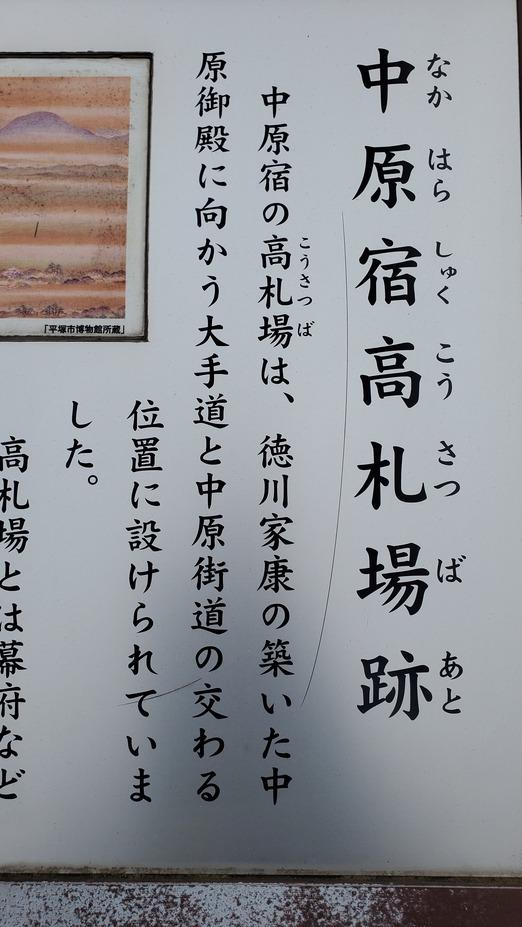 中原宿高札場跡
なか はら しゅく こう さつ ば あと
中原宿の高札場は、徳川家康の築いた中
こうさつば
原御殿に向かう大手道と中原街道の交わる
位置に設けられていま
した。
高札場とは幕府など
「平塚市博物館所蔵」